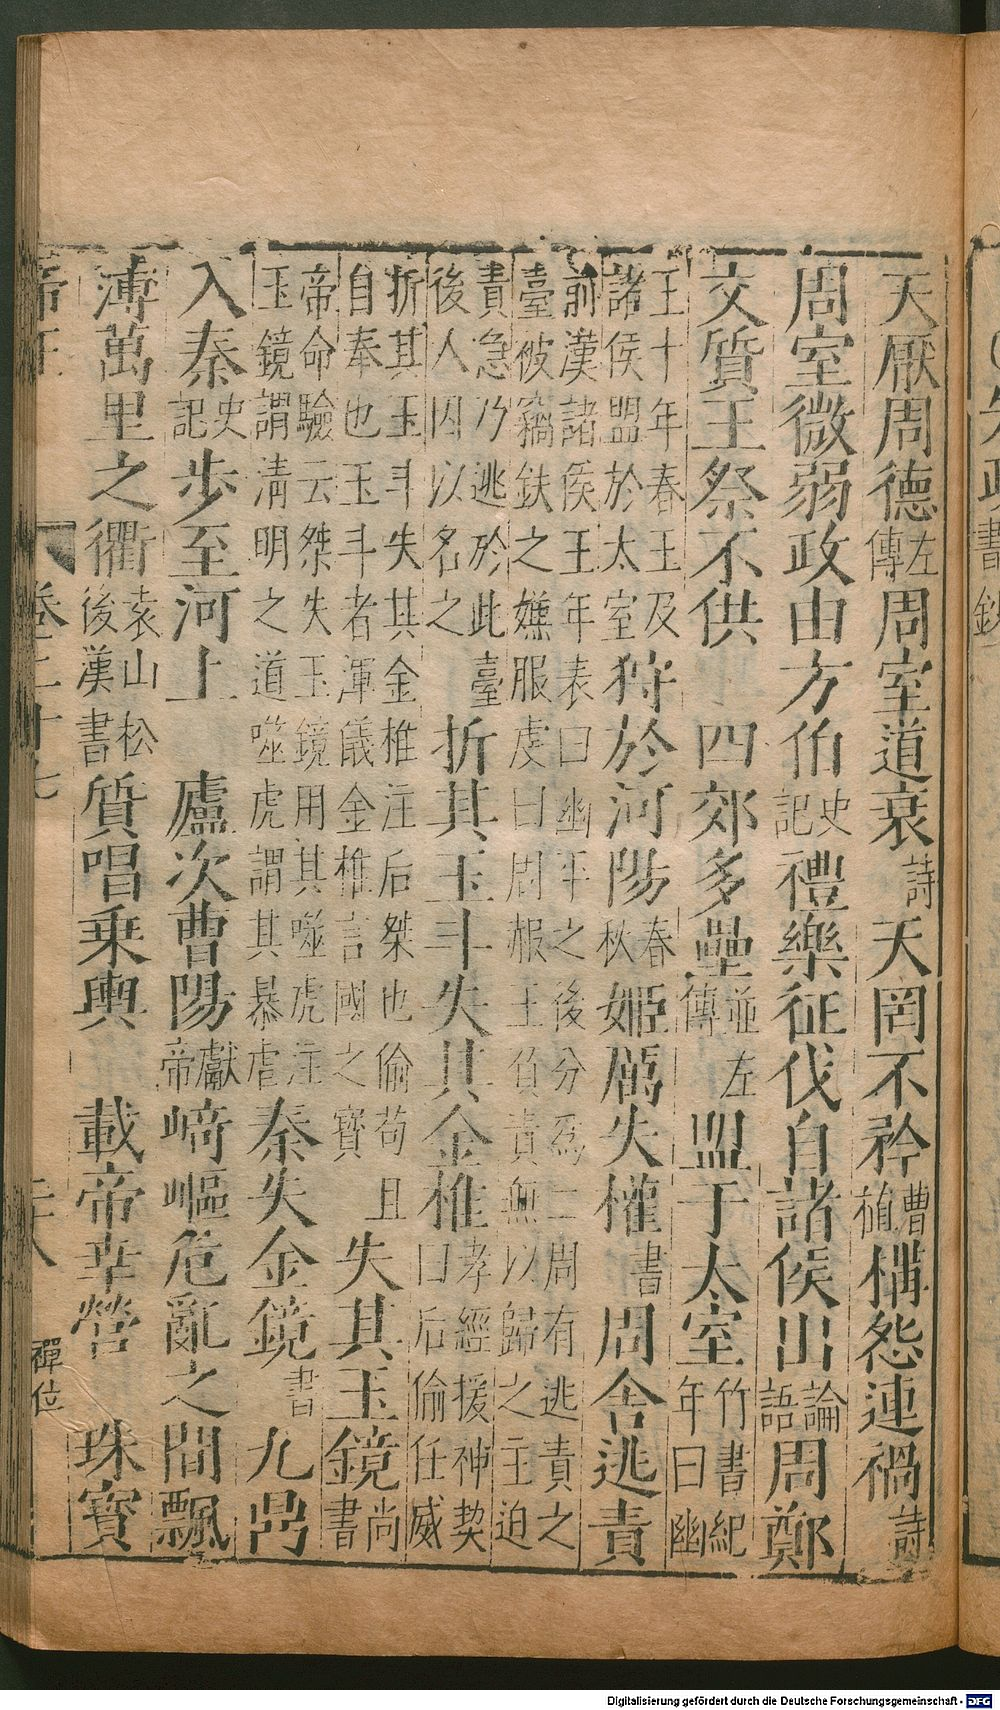 天厭周德左傳周室道衰詩天罔不矜曹植構怨連禍詩
周室微弱政由方伯史記禮樂征伐自諸侯出論語周鄭
交質王祭不供 四郊多壘並左傳盟于太室竹書紀年曰幽
王十年春王及諸侯盟於太室狩於河陽春秋姬厲失權書周舍逃責
前漢諸侯王年表曰幽平之後分爲二周有逃責之臺被竊鈇之 服虔曰周赧王負責無以歸之主迫
責急乃逃於此臺後人因以名之 折其玉斗失其金椎孝經援神契曰后偷任威
折其玉斗失其金椎注后桀也偷苟且自奉也玉斗者渾儀金椎言國之寶 失其玉鏡尚書
帝命驗云桀失玉鏡用其噬虎注玉鏡謂清明之道噬虎謂其暴虐秦失金鏡書九鼎
入秦史記步至河上 廬次曹陽獻帝崎嶇危亂之間飄
溥萬里之衢袁山松後漢書質唱乗輿 載帝幸營 珠寳
帝 卷二十七 二十八 禪位
書鈔
Digitalisierung gefördert durch die Deutsche Forschungsgemeinschaft - DFG